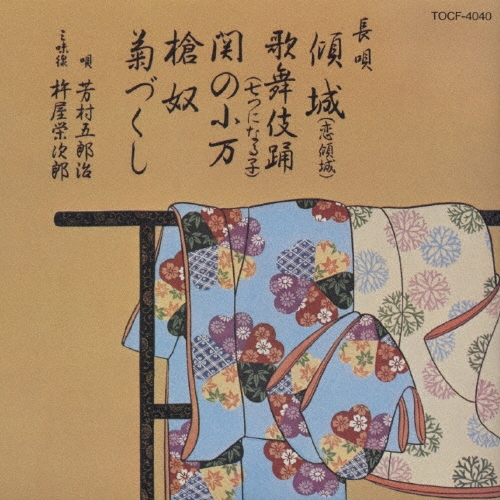 TOCF-4040
長唄
傾城(恋傾城)
歌舞伎踊(七つになる子)
関の小万
槍奴
菊づくし
唄 芳村五郎治
三味線 杵屋栄次郎